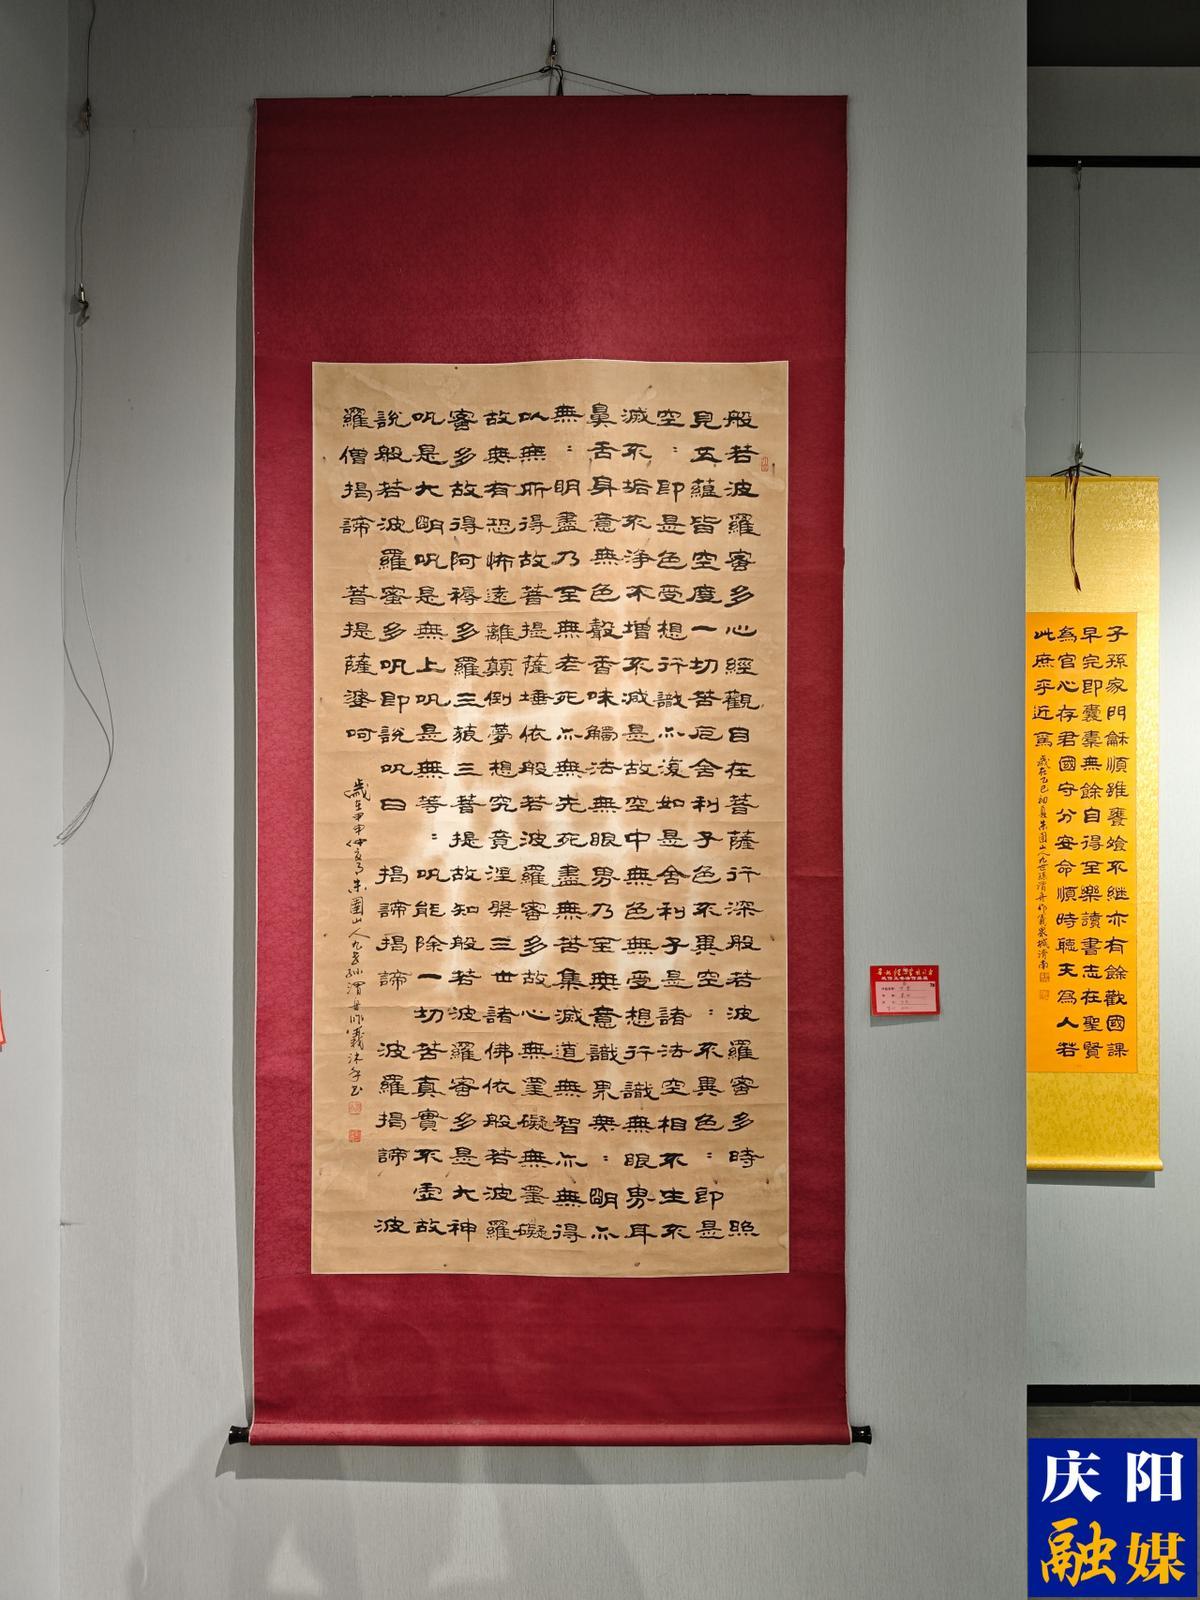 般若波羅蜜多心經觀自在菩薩行深般若波羅蜜多時照
見五蘊皆空度一切苦厄舍利子色不異空：不異色：即是
空：即是色受想行識亦復如是舍利子是諸法空相不生不
滅不垢不淨不增不減是故空中無色無受想行識無眼界耳
鼻舌身意無色聲香味觸法無眼界乃至無意識界無：明亦
無：明盡乃至無老死亦無老死盡無苦集滅道無智亦無得
以無所得故菩提薩埵依般若波羅蜜多故心無罣礙無罣礙
故無有恐怖遠離顛倒夢想究竟涅槃三世諸佛依般若波羅
蜜多故得阿耨多羅三藐三菩提故知般若波羅蜜多是大神
呪是大明呪是無上呪是無等：呪能除一切苦真實不虛故
說般若波羅蜜多呪即說呪曰 揭諦揭諦 波羅揭諦 波
羅僧揭諦 菩提薩婆呵
歲在甲申仲夏月朱圉山人九世孫渭舟作義沐手書
子孫家門龢順雖饔飧不繼亦有餘歡國課
早完即囊橐無餘自得至樂讀書志在聖賢
為官心存君國守分安命順時聽天為人若
此庶乎近焉
歲在乙巳初夏朱圉山人九世孫渭舟作義
庆阳
融媒